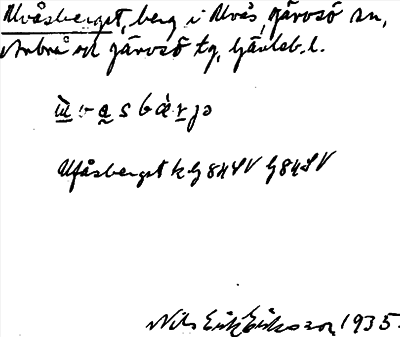 Ulvåsberget, berg i Ulvås, Järvsö sn,
Arbrå och Järvsö tg, Gävleb. l.
Ulfåsberget k G 84 SV G 84 SV
Nils Erik Eriksson 1935.